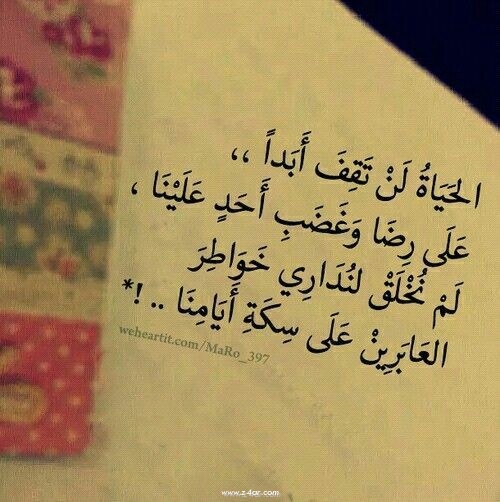 الحَيَاةُ لَنْ تَقِفَ أَبَداً ،،
عَلَى رِضَا وَغَضَبِ أَحَدٍ عَلَيْنَا ،
لَمْ نُخْلَقْ لنُدَارِي خَوَاطِرَ
العَابَرِينْ عَلَى سِكَةِ أَيَامِنَا .. !*
weheartit.com/MaRo_397
www.z-4ar.com